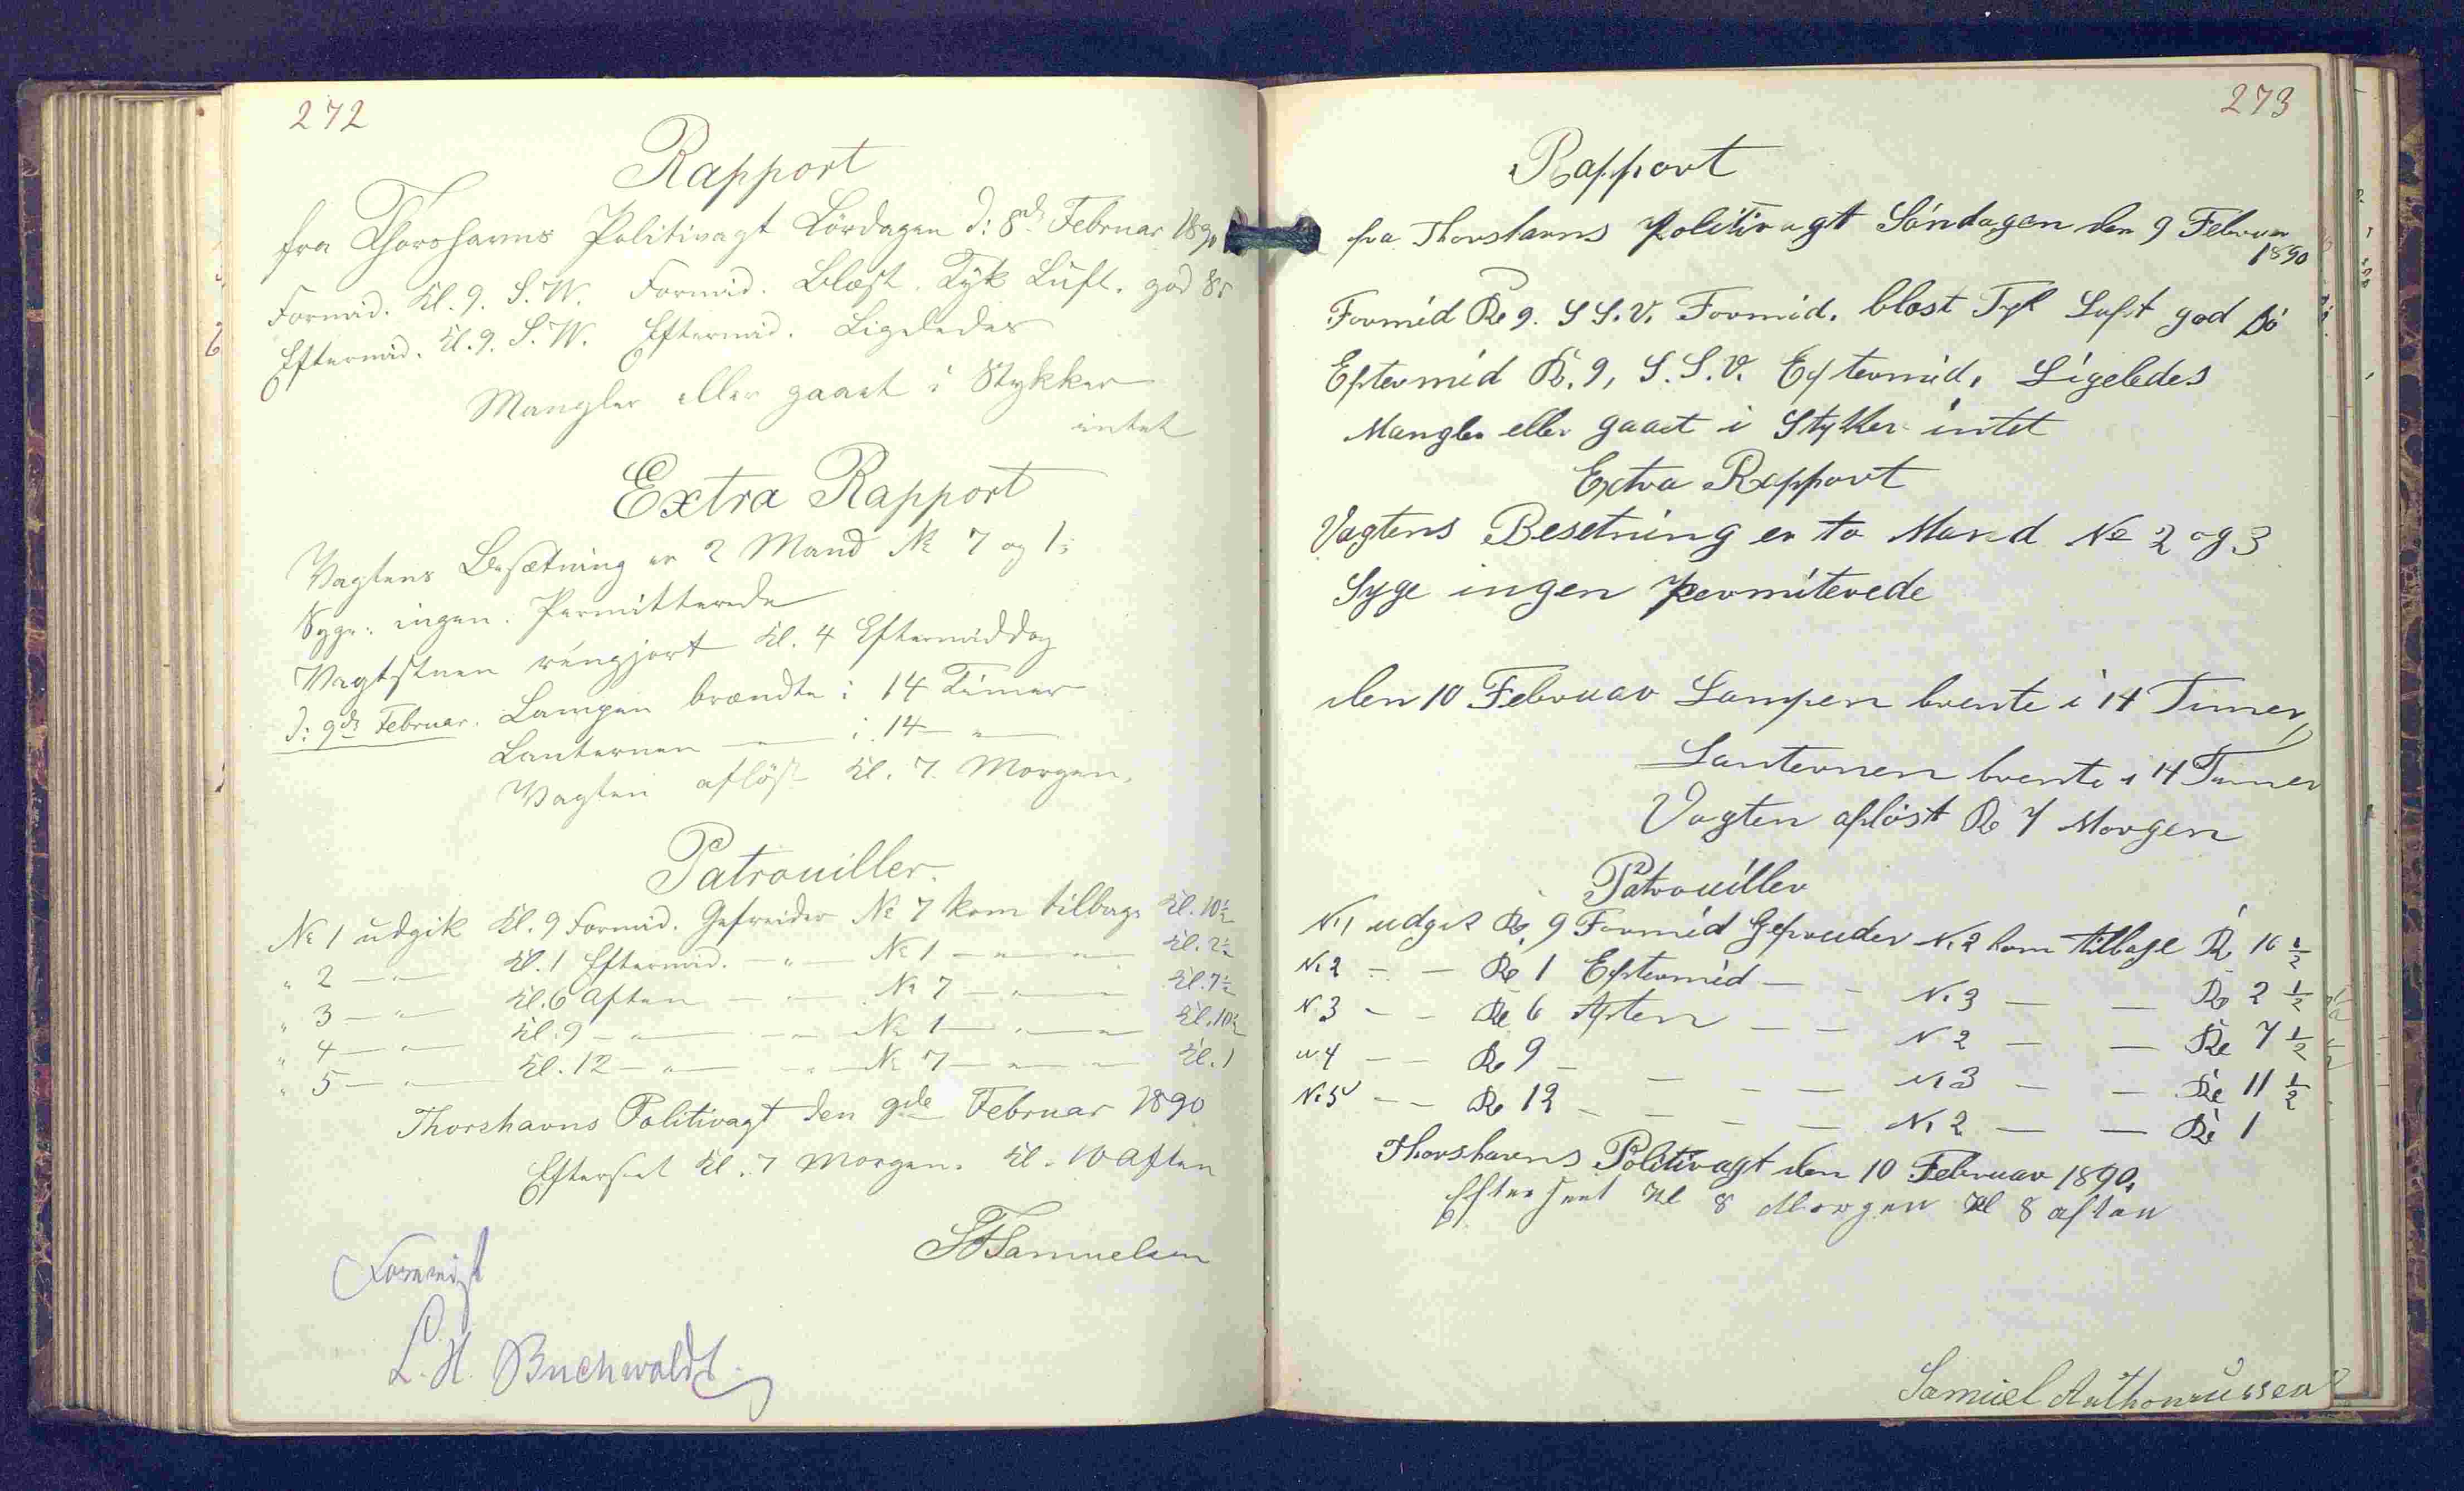 272
Rapport
fra Thorshavns Politivagt Lördagen d: 8de Februar 1890
Formid. Kl. 9. S.W. Formid. Blæst. Tyk Luft. god Sö
Eftermid. Kl. 9. S.W. Eftermid. Ligeledes
Mangler eller gaaet i Stykker
intet
Extra Rapport
Vagtens Besætning er 2 Mand No 7 og 1;
Syge: ingen. Permitterede
Vagtstuen réngjort Kl. 4 Eftermiddag
d: 9de Februar. Lampen brændte i 14 Timer
Lanternen — " — i 14 — " —
Vagten aflöst Kl. 7. Morgen.
Patrouiller.
No 1 udgik Kl. 9 Formid. Gefreider No 7 kom tilbage Kl. 10½
" 2 — " — Kl. 1 Eftermid. — " — No 1 — " — " — Kl. 2½
" 3 — " — Kl. 6 Aften — " — No 7 — " — " — Kl. 7½
" 4 — " — Kl. 9 — " — " — No 1 — " — " — Kl. 10½
" 5 — " — Kl. 12 — " — " — No 7 — " — " — Kl. 1
Thorshavns Politivagt den 9de Februar 1890
Efterseet Kl. 7 Morgen. Kl. 10 Aften
Samuelsen
L. H. Buchwaldt.
273
Rapport
fra Thorshavns Politivagt Söndagen den 9 Februar
1890
Formid Kl 9. S S. V. Formid. blæst Tyk Luft god Sö
Eftermid Kl. 9, S. S. V. Eftermid, Ligeledes
Mangler eller gaaet i Stykker intet
Extra Rapport
Vagtens Besetning er to Mand No 2 og 3
Syge ingen permiterede
den 10 Februar Lampen brente i 14 Timer,
Lanternen brente i 14 Timer
Vagten aflöst Kl 7 Morgen
Patrouiller
N. 1 udgik Kl. 9 Formid Gefreuder N. 2 kom tilbage Kl 10 ½
N. 2 — — Kl 1 Eftermid — — N. 3 — — Kl 2 ½
N. 3 — — Kl 6 Aften — — N 2 — — Kl 7 ½
N. 4 — — Kl 9 — — — — N. 3 — — Kl 11 ½
N. 5 — — Kl 12 — — — — N. 2 — — Kl 1
Thorshavns Politivagt den 10 Februar 1890,
Efterseet Kl 8 Morgen Kl 8 aften
Samuel Anthoniussen